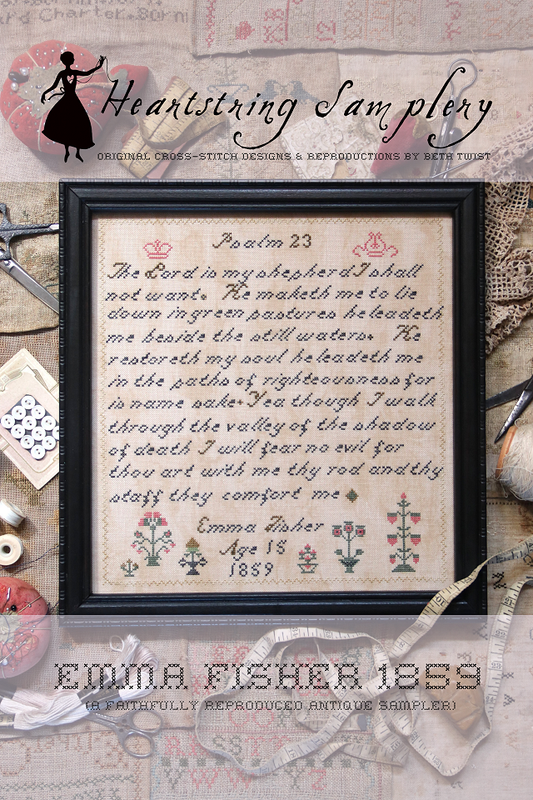 Heartstring Samplery
ORIGINAL CROSS-STITCH DESIGNS & REPRODUCTIONS BY BETH TWIST
Psalm 23
The Lord is my shepherd I shall
not want. He maketh me to lie
down in green pastures he leadeth
me beside the still waters. He
restoreth my soul he leadeth me
in the paths of righteousness for
is name sake. Yea though I walk
through the valley of the shadow
of death I will fear no evil for
thou art with me thy rod and thy
staff they comfort me
Emma Fisher
Age 15
1859
EMMA FISHER 1859
(A FAITHFULLY REPRODUCED ANTIQUE SAMPLER)